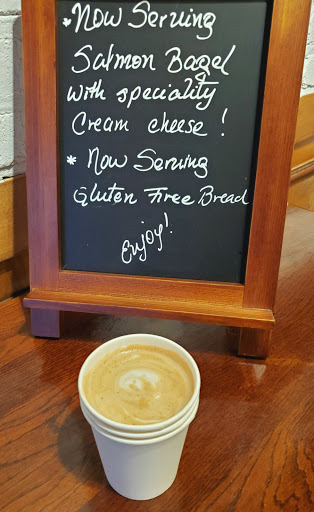 * Now Serving
Salmon Bagel
with speciality
Cream cheese !
* Now Serving
Gluten Free Bread
Enjoy!